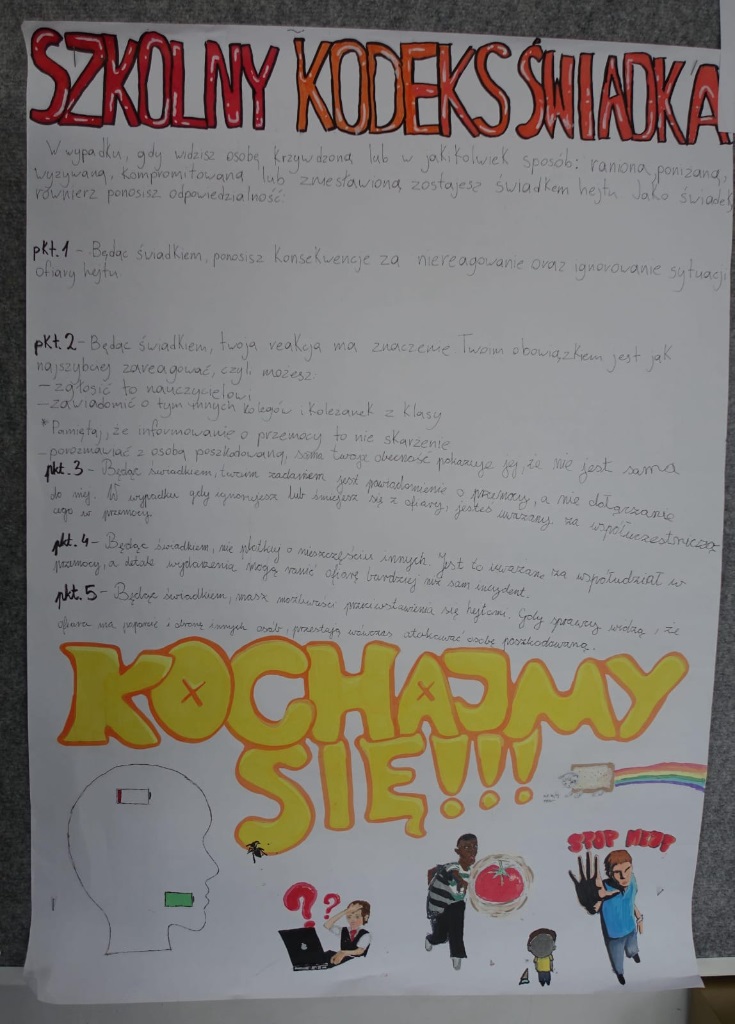 SZKOLNY KODEKS ŚWIADKA
W wypadku, gdy widzisz osobę krzywdzoną lub w jakikolwiek sposób: raniona, poniżaną,
wyzywaną, kompromitowaną lub zniesławioną zostajesz świadkem hejtu. Jako świadek,
równierz ponosisz odpowiedzialność:
pkt.1 - Będąc świadkiem, ponosisz konsekwencje za niereagowanie oraz ignorowanie sytuacji
ofiary hejtu.
pkt.2 - Będąc świadkiem, twoja reakcja ma znaczenie. Twoim obowiązkiem jest jak
najszybciej zareagować, czyli możesz:
- zgłosić to nauczycielowi
- zawiadomić o tym innych kolegów i koleżanek z klasy
* Pamiętaj, że informowanie o przemocy to nie skarżenie
- porozmawiać z osobą poszkodowaną, sama twoja obecność pokazuje jej, że nie jest sama
pkt.3 - Będąc świadkiem, twoim zadaniem jest powiadomienie o przemocy, a nie dołączanie
do niej. W wypadku gdy ignorujesz lub śmiejesz się z ofiary, jesteś uważany za współuczestniczą
cego w przemocy.
pkt.4 - Będąc świadkiem, nie plotkuj o nieszczęściu innych. Jest to uważane za współudział w
przemocy, a detale wydarzenia mogą ranić ofiarę bardziej niż sam incydent.
pkt.5 - Będąc świadkiem, masz możliwości przeciwstawienia się hejtowi. Gdy sprawcy widzą, że
ofiara ma pomoc i obronę innych osób, przestają wówczas atakować osobę poszkodowaną.
KOCHAJMY
SIĘ!!!
STOP HEJT
? ?